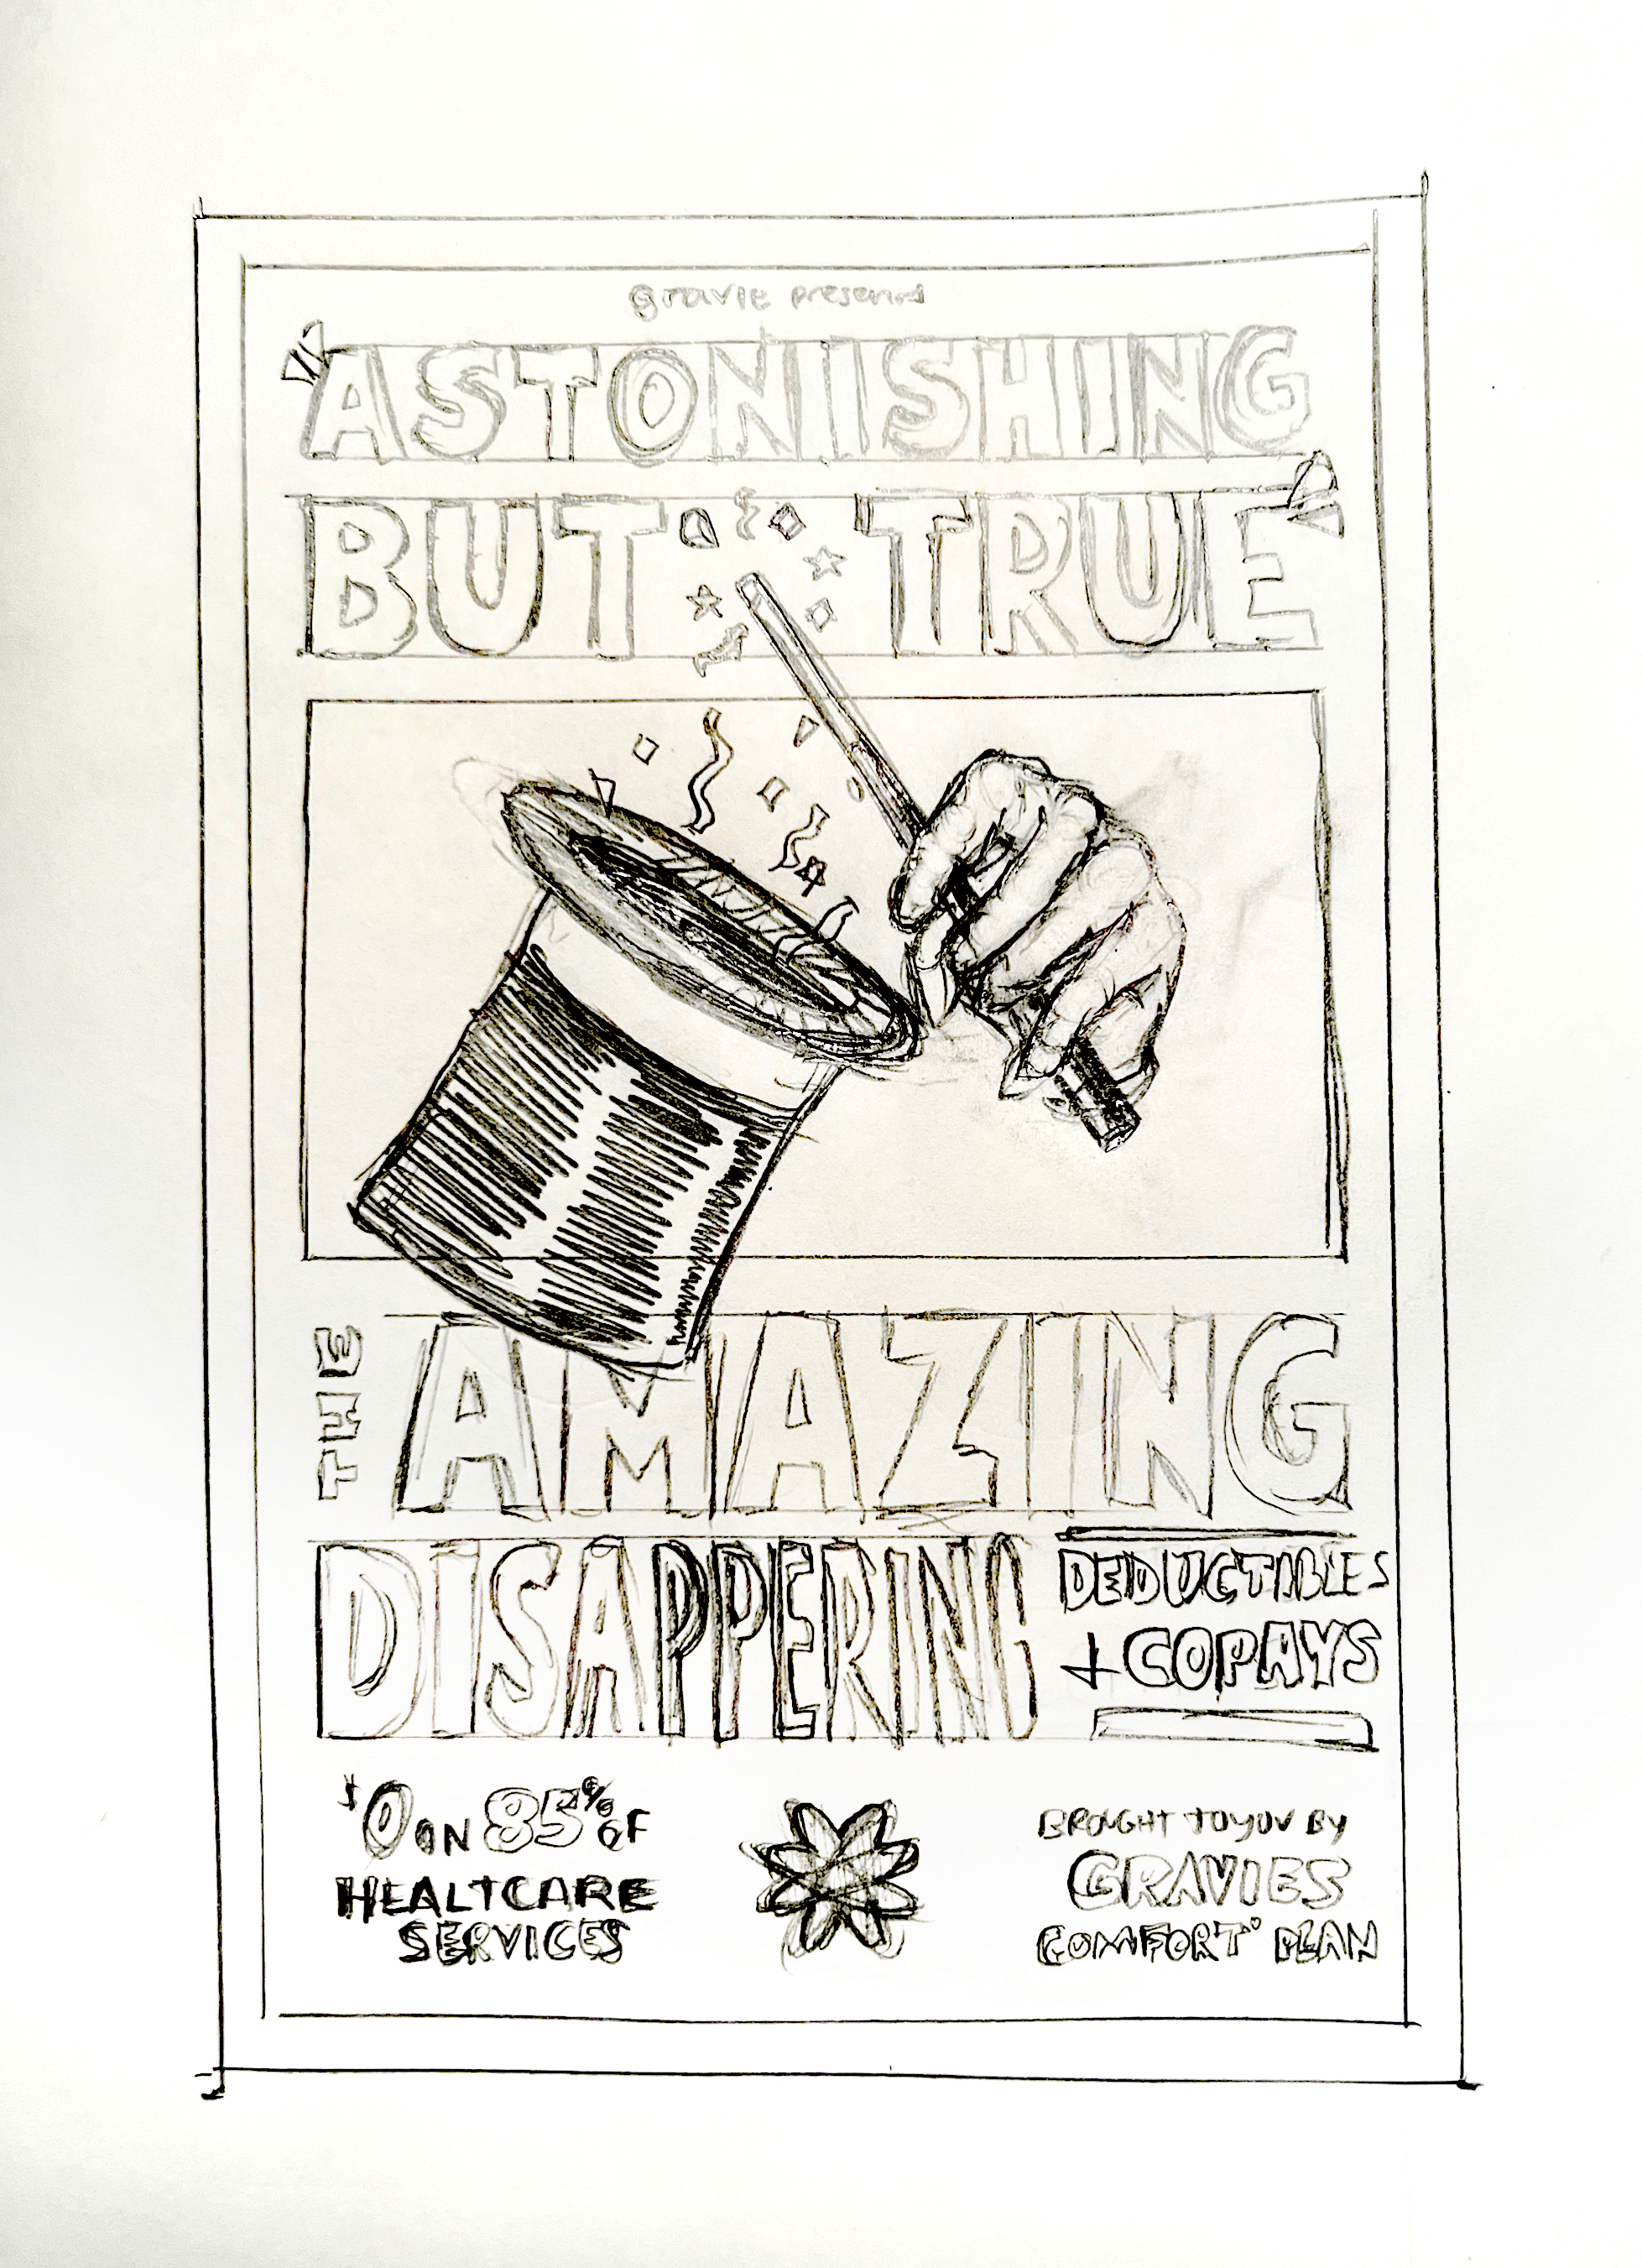 Gravie presents
"ASTONISHING
BUT TRUE"
THE
AMAZING
DISAPPERING
DEDUCTIBLES
+ COPAYS
$0 ON 85% OF
HEALTCARE
SERVICES
BROUGHT TO YOU BY
GRAVIES
COMFORT® PLAN